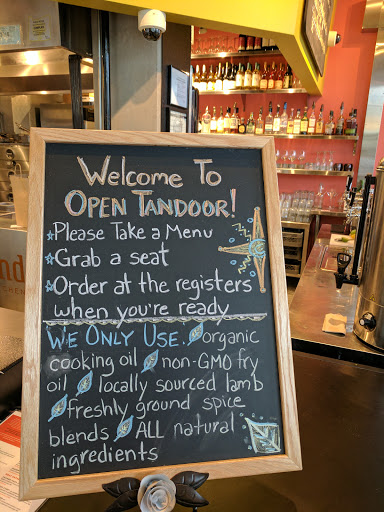 Welcome To
OPEN TANDOOR!
Please Take a Menu
Grab a seat
Order at the registers
when you're ready
WE ONLY USE: organic
cooking oil non-GMO fry
oil locally sourced lamb
freshly ground spice
blends ALL natural
ingredients